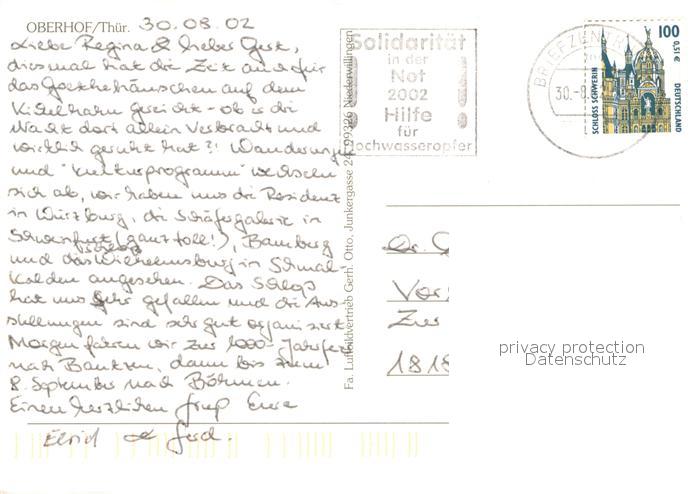 OBERHOF/Thür. 30.08.02
Liebe Regina & lieber Gert,
diesmal hat die Zeit auch für
das Goethehäuschen auf dem
Kickelhahn gereicht - ob er die
Nacht dort allein verbracht und
wirklich geruht hat?! Wanderungen
und "Kulturprogramm" wechseln
sich ab, wir haben uns die Residenz
in Würzburg, die Schäfergalerie in
Schweinfurt (ganz toll!), Bamberg
und das Schloß Wilhelmsburg in Schmal-
kalden angesehen. Das Schloß
hat uns sehr gefallen und die Aus-
stellungen sind sehr gut organisiert.
Morgen fahren wir zur 1000-Jahrfeier
nach Bautzen, dann bis zum
8. September nach Böhmen.
Einen herzlichen Gruß Eure
& Gerd.
Fa. Luftbildvertrieb Gerh. Otto, Junkergasse 24, 99326 Niederwillingen
Solidarität
in der
Not
2002
Hilfe
für
Hochwasseropfer
BRIEFZENTR
30.-8
100
0,51 €
SCHLOSS SCHWERIN
DEUTSCHLAND
Dr. G
Vor
Zur
1818
privacy protection
Datenschutz